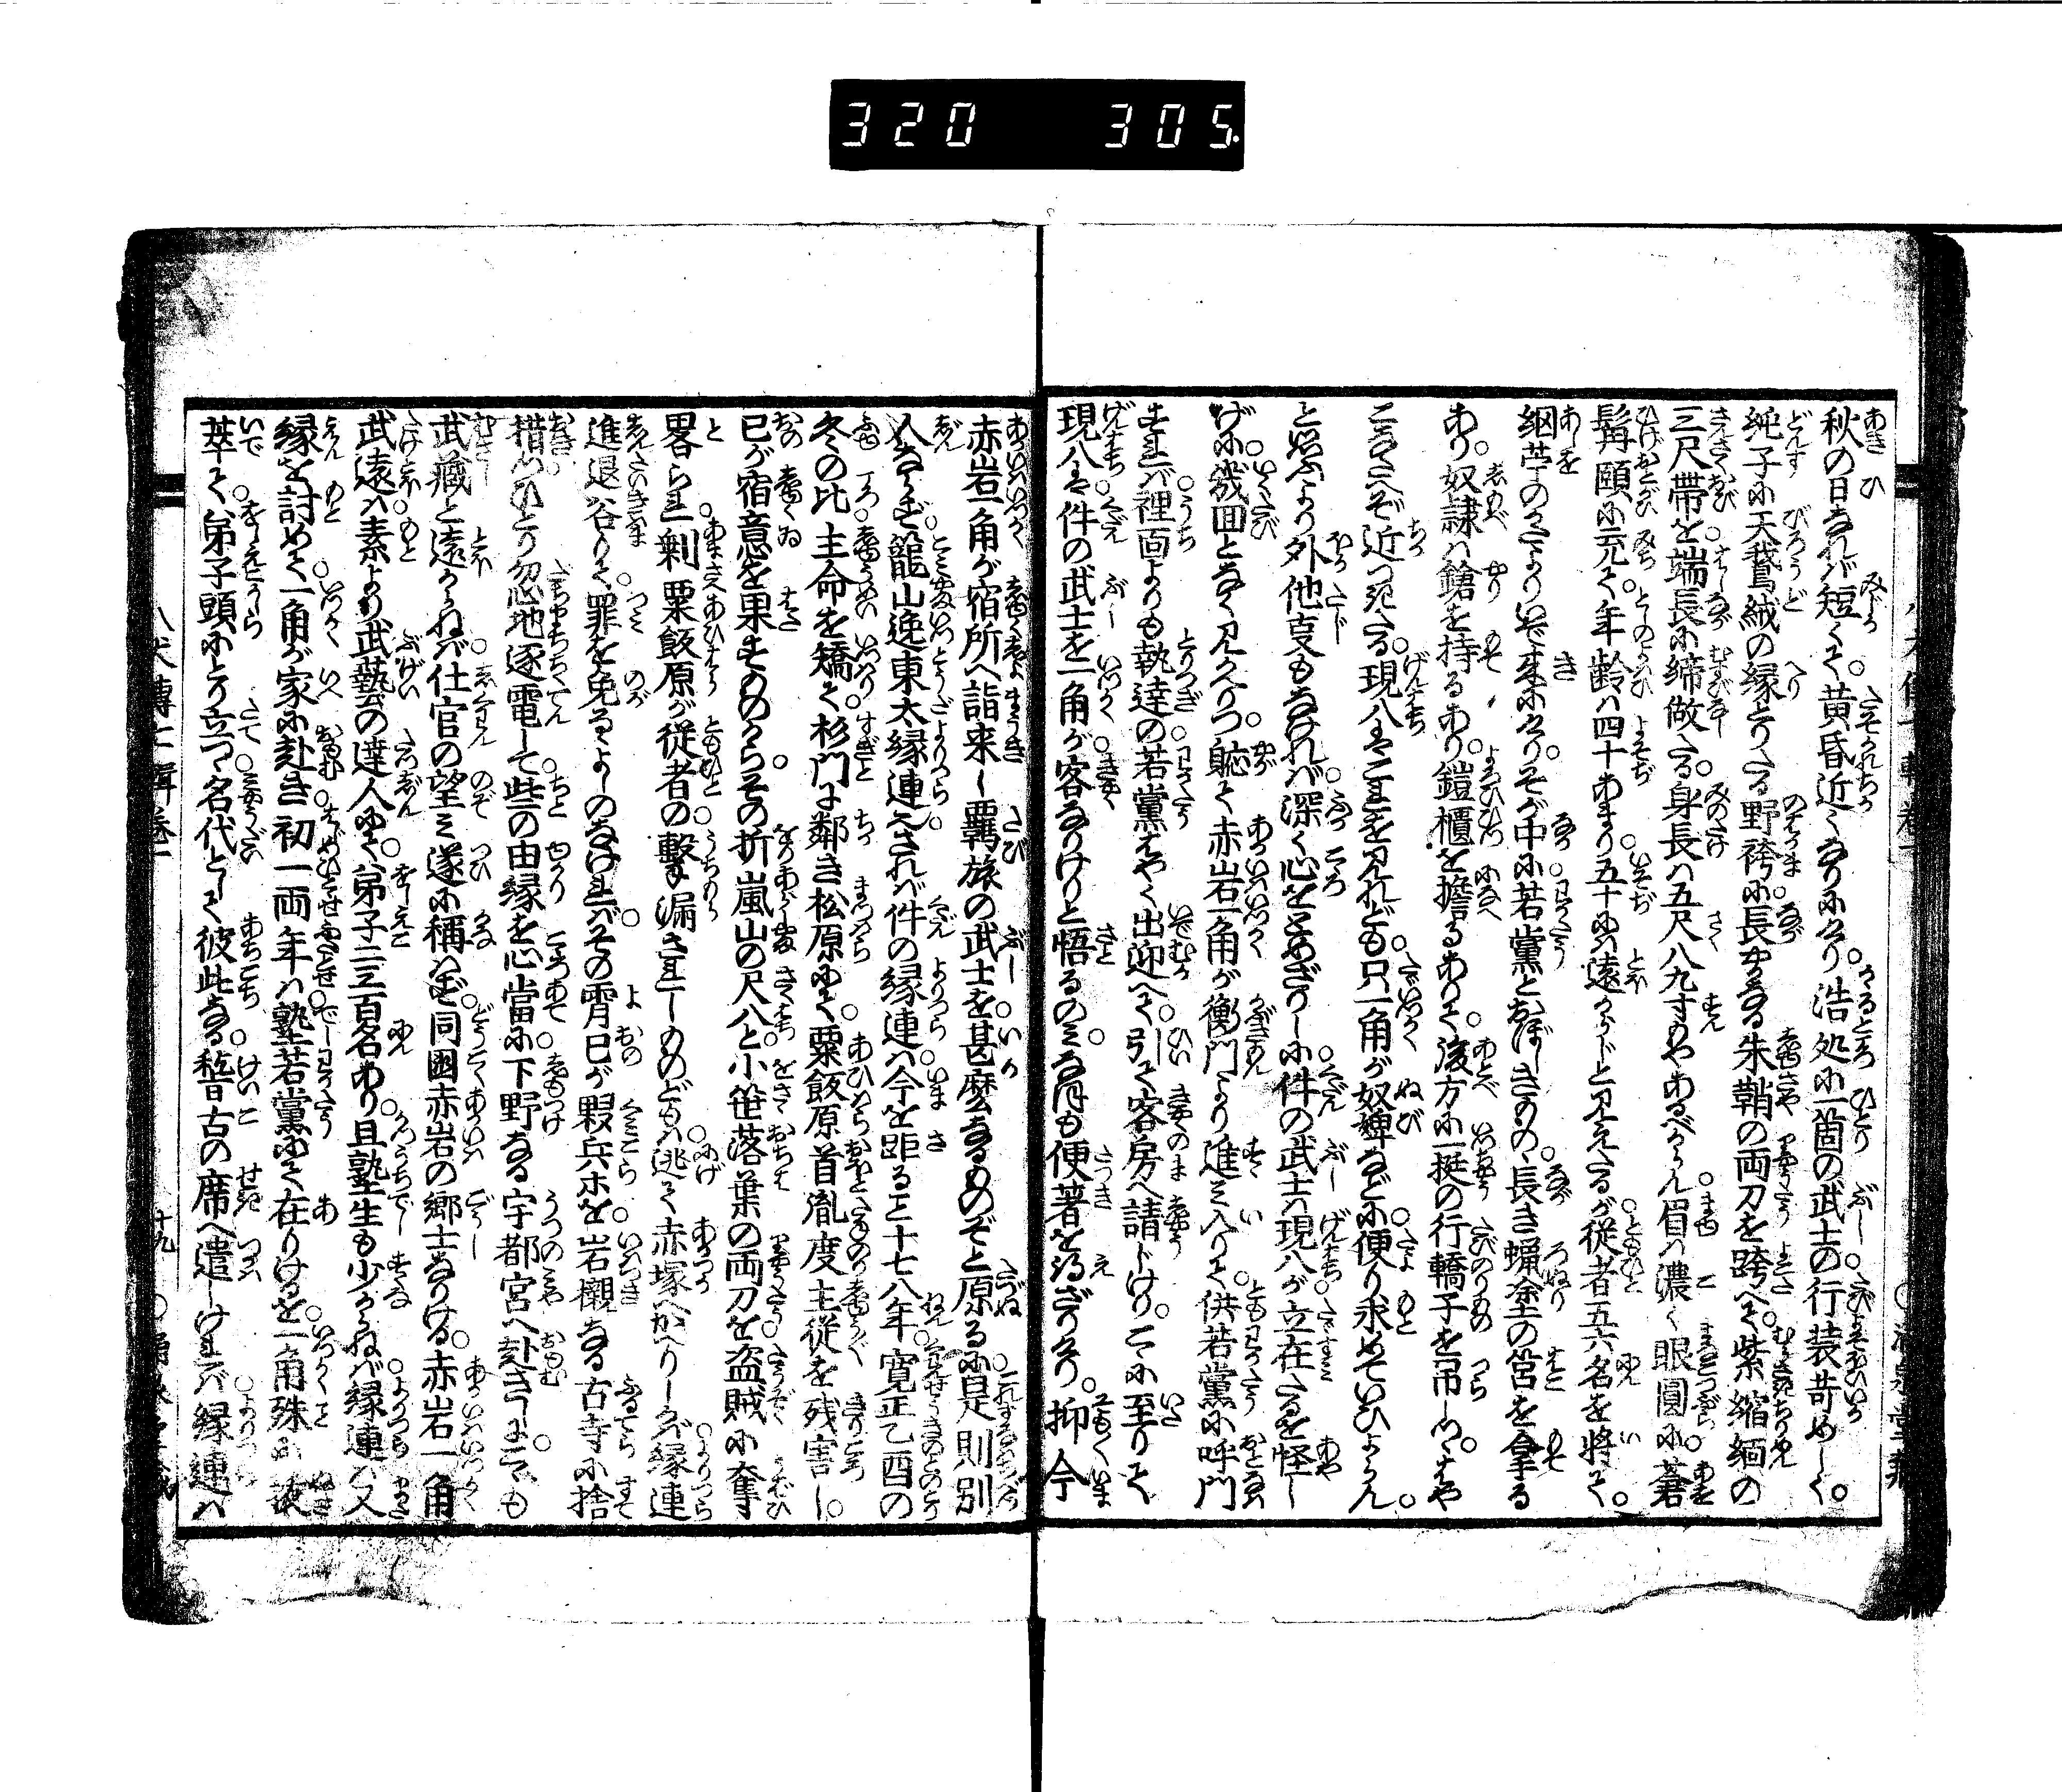 320 305
秋の日なれば短くて。黄昏近くなりにけり。浩処に一箇の武士の行装苛めしく。
純子に天鵞絨の縁とりたる野袴に。長やかなる朱鞘の両刀を跨へて。紫縮緬の
三尺帯を端長に締做たる。身長は五尺八九寸もやあるべからん。眉は濃く眼圓に。蒼
髯頤に充て。年齢は四十あまり。五十には遠からじと見えたるが。従者五六名を将て。
絪苧のかたよりいで来にけり。そが中に若黨とおぼしきもの。長き蝋塗の筥を拿る
あり。奴隷は鎗を持るあり。鎧櫃を擔るありて。後方に一挺の行轎子を吊しつ。はや
こなたへぞ近づきたる。現八はこれを見れども。只一角が奴婢などに。便り求めていひよらん。
と思ふより外他事もなければ。深く心をとめざりしに。件の武士は現八が立在たるを怪し
げに。幾回となく見かへりつ。軈て赤岩一角が衡門より進み入りて。供若黨に呼門
すれば。裡面よりも執達の。若黨はやく出迎へて。引て客房へ請じけり。こゝに至りて
現八は。件の武士を一角が。客なりけりと悟るのみ。なほも便著を得ざりけり。抑今
赤岩一角が宿所へ詣来し。覊旅の武士を。甚麼なるものぞと原るに。是則別
人ならず。籠山逸東太縁連なり。されば件の縁連は。今を距ること十七八年。寛正乙酉の
冬の比。主命を矯て。杉門に鄰き松原にて。粟飯原首胤度主従を残害し。
己が宿意を果すのみならず。その折嵐山の尺八と。小笹落葉の両刀を。盗賊に奪
畧られ。剰粟飯原が従者の。撃漏されしものどもは。逃て赤塚へかへりしかば。縁連
進退谷りて。罪を免るよしのなければ。その霄己が夥兵ホを。岩襯なる古寺に捨
措つ。ひとり忽地逐電して。些の由縁を心當に。下野なる宇都宮へ赴きしに。こゝも
武藏と遠からねば。仕官の望み遂に稱はず。同國赤岩の郷士なりける。赤岩一角
武遠は。素より武藝の達人にて。弟子二三百名あり。且塾生も少からねば。縁連は又
縁を討めて。一角が家に赴き。初一両年は。塾若黨にて在りけるを。一角殊に抜
萃て。弟子頭にとり立つゝ。名代として彼此なる。稽古の席へ遣しければ。縁連は
八犬傳七輯卷一
十九